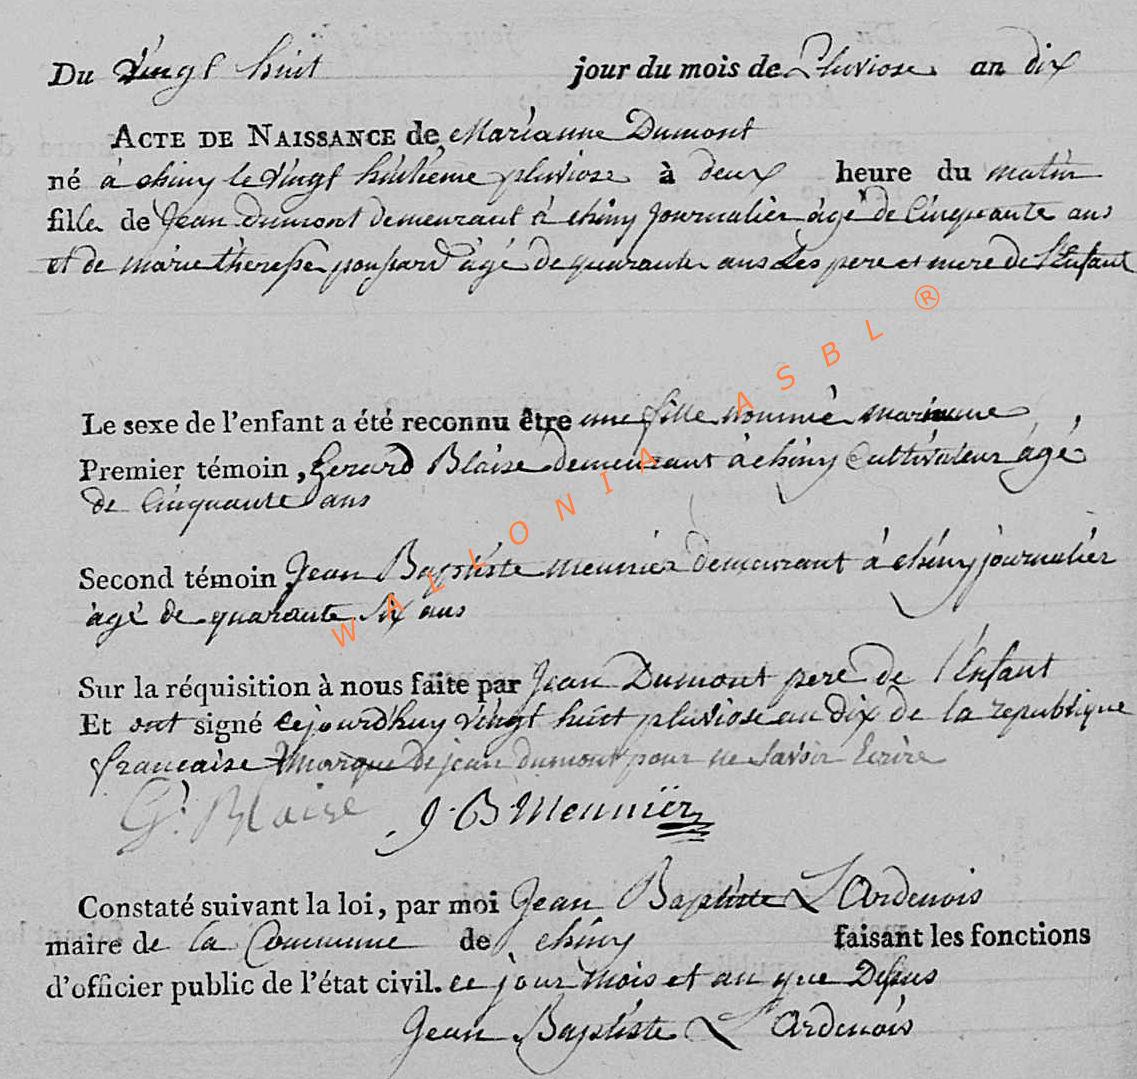 Du Vingt huit jour du mois de Pluviose an dix
ACTE DE NAISSANCE de Marianne Dumont
né à chiny le Vingt huitieme pluviose à deux heure du matin
fille de Jean dumont demeurant à chiny Journalier âgé de Cinquante ans
et de marie therese poupard âgé de quarante ans Les pere et mere de l'Enfant
Le sexe de l'enfant a été reconnu être une fille nommé marianne
Premier témoin, Gerard Blaise demeurant à chiny Cultivateur âgé
de Cinquante ans
Second témoin Jean Baptiste meunier demeurant à chiny journalier
âgé de quarante six ans
Sur la réquisition à nous faite par Jean Dumont pere de l'Enfant
Et ont signé cejourd'huy vingt huit pluviose an dix de la republique
francaise marque de jean dumont pour ne savoir Ecrire
G. Blaise J. B. Meunier
Constaté suivant la loi, par moi Jean Baptiste L'Ardenois
maire de la Commune de chiny faisant les fonctions
d'officier public de l'état civil. ce jour mois et an que Dessus
Jean Baptiste L'Ardenois
WALLONIA ASBL ®